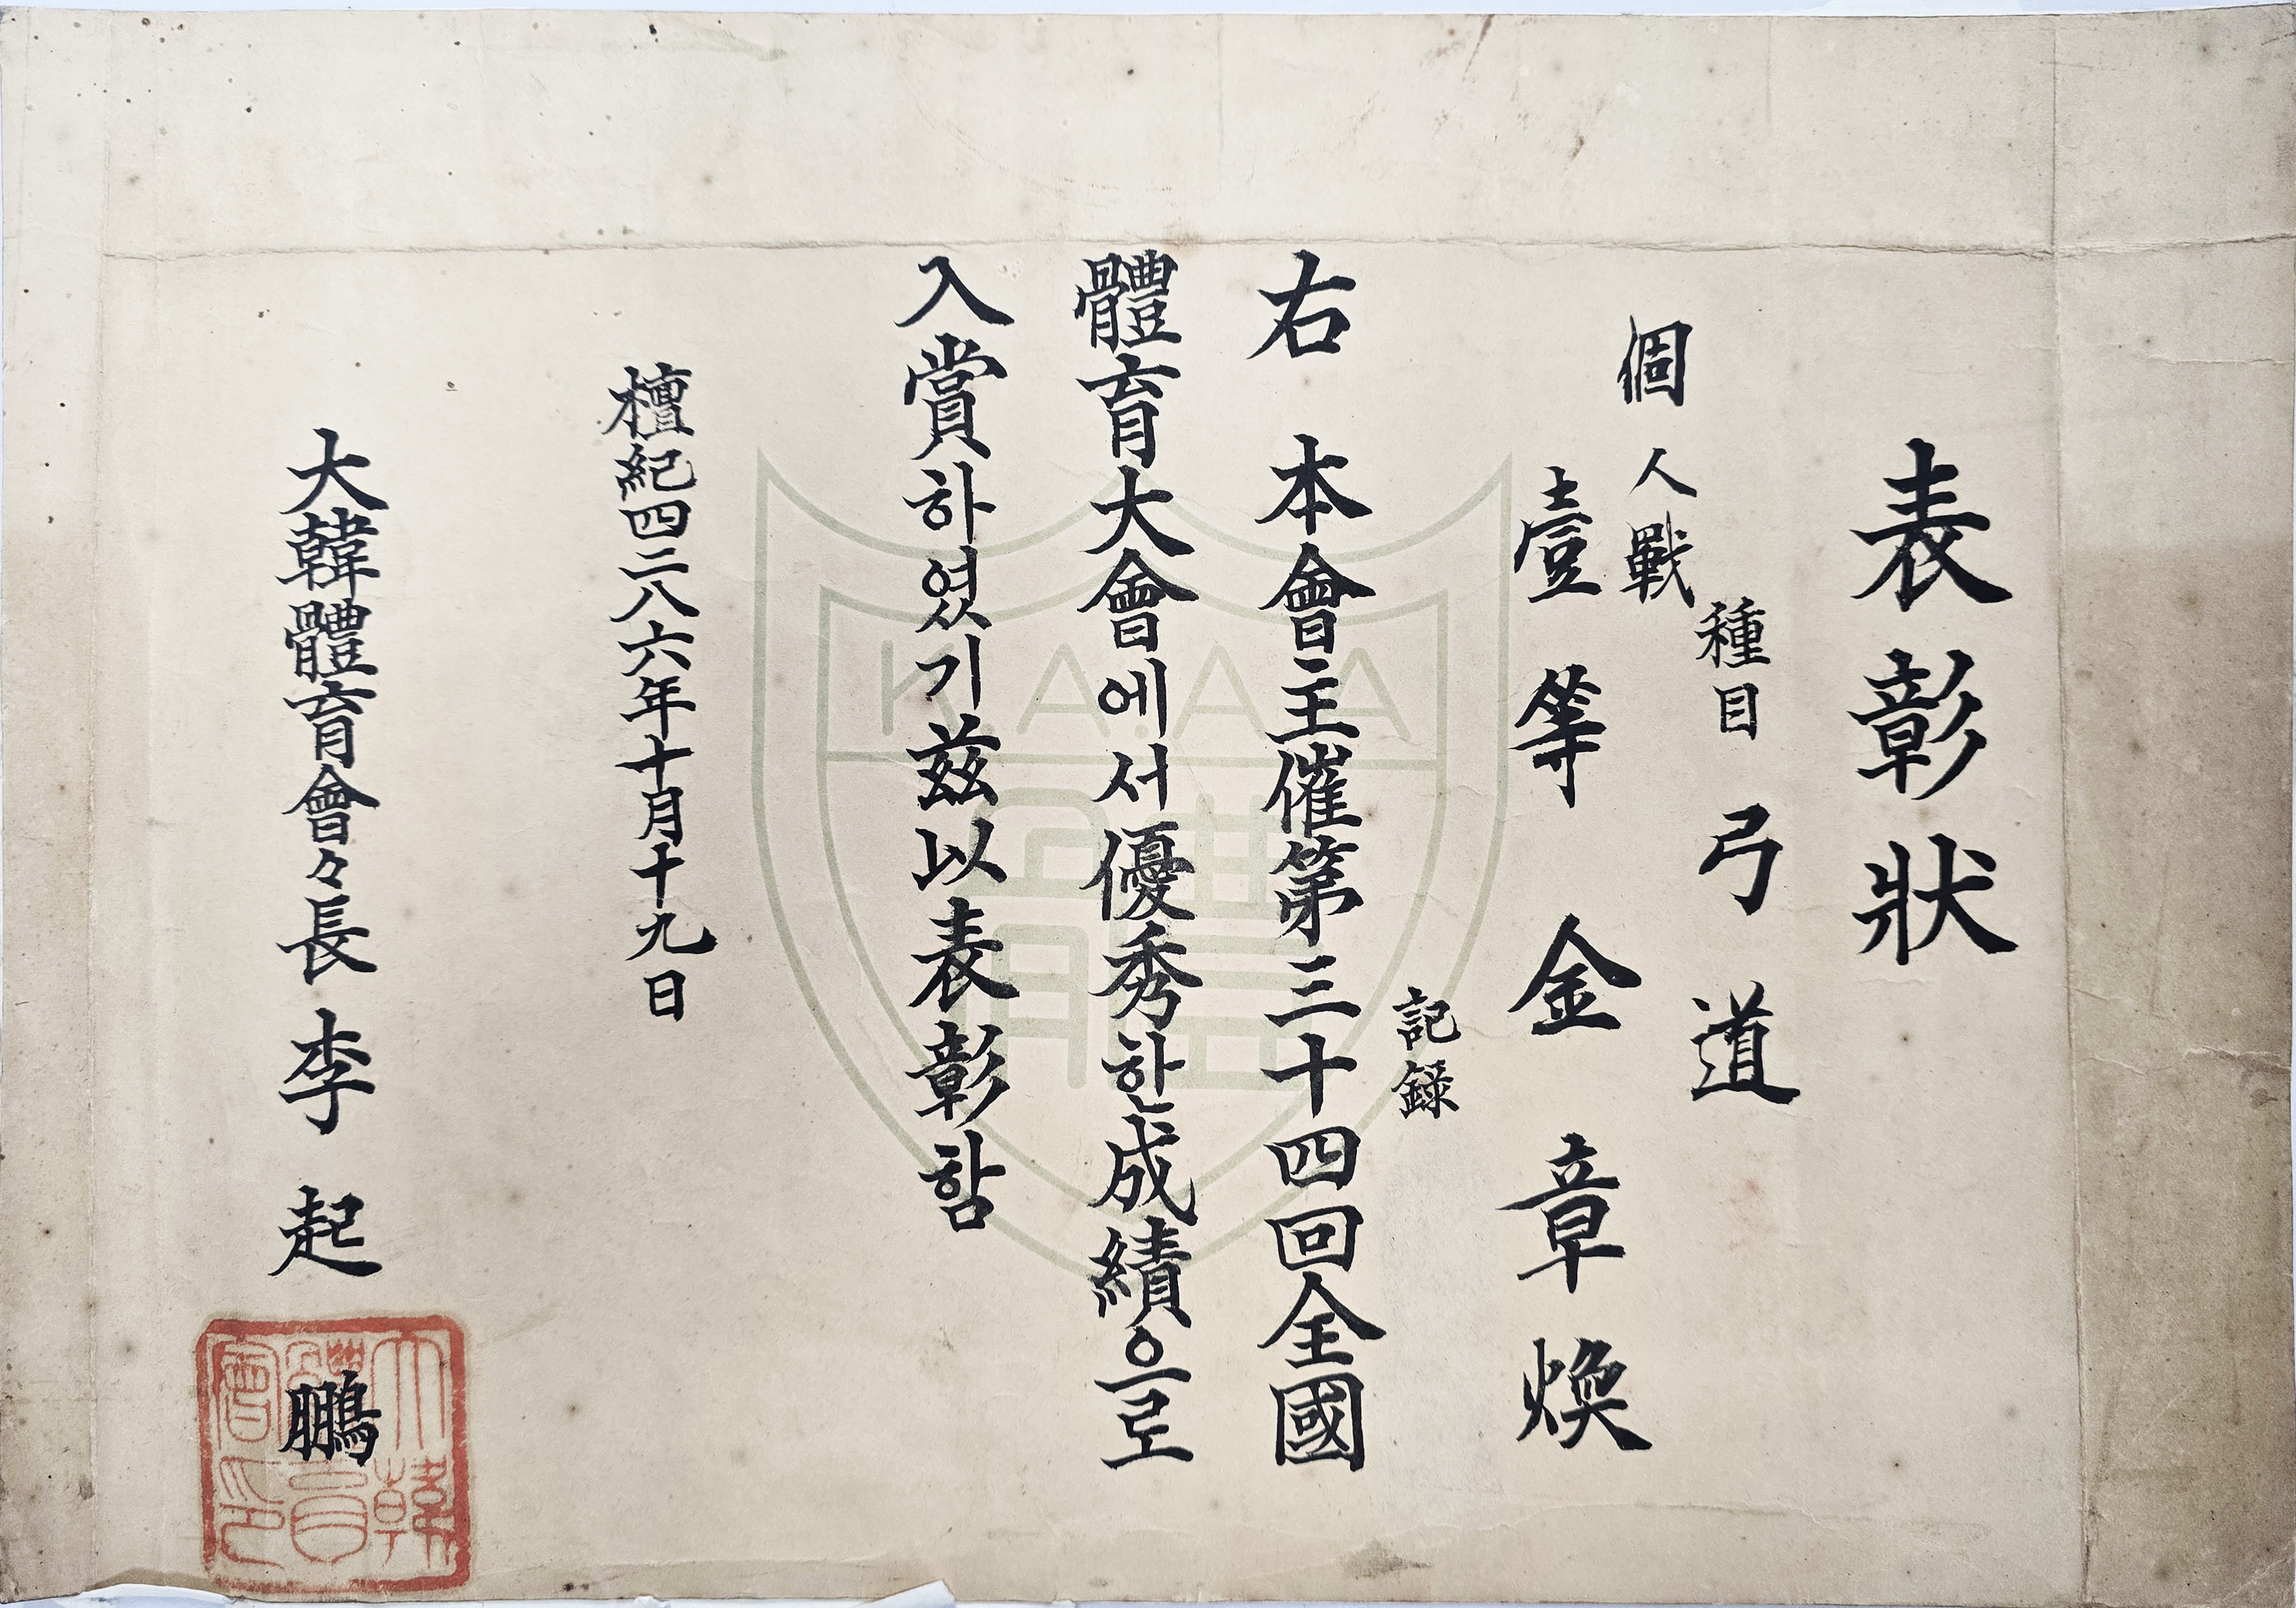 表彰狀
種目 弓道
個人戰
壹等 金章煥
記錄
右 本會主催第三十四回全國
體育大會에서優秀한成績으로
入賞하였기玆以表彰함
檀紀四二八六年十月十九日
大韓體育會々長 李起鵬
K.A.A.A
體
大韓體育會印